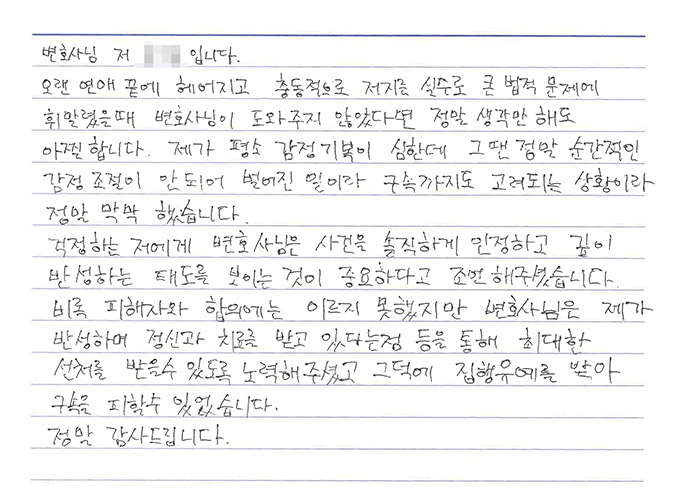 변호사님 저 입니다.
오랜 연애 끝에 헤어지고 충동적으로 저지른 실수로 큰 법적 문제에
휘말렸을때 변호사님이 도와주지 않았다면 정말 생각만 해도
아찔합니다. 제가 평소 감정기복이 심한데 그땐 정말 순간적인
감정 조절이 안되어 벌어진 일이라 구속까지도 고려되는 상황이라
정말 막막 했습니다.
걱정하는 저에게 변호사님은 사건을 솔직하게 인정하고 깊이
반성하는 태도를 보이는 것이 중요하다고 조언해주셨습니다.
비록 피해자와 합의에는 이르지 못했지만 변호사님은 제가
반성하며 정신과 치료를 받고 있다는점 등을 통해 최대한
선처를 받을수 있도록 노력해주셨고 그덕에 집행유예를 받아
구속을 피할수 있었습니다.
정말 감사드립니다.